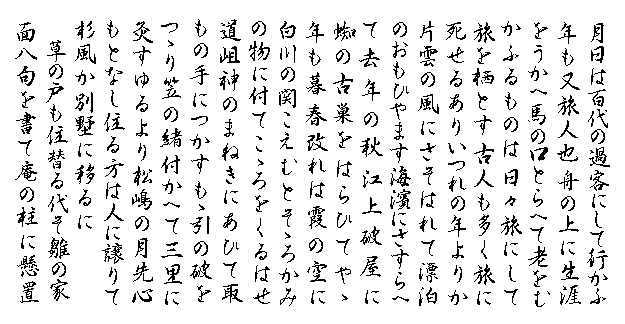 月日は百代の過客にして行かふ
年も又旅人也舟の上に生涯
をうかへ馬の口とらへて老をむ
かふるものは日々旅にして
旅を栖とす古人も多く旅に
死せるありいつれの年よりか
片雲の風にさそはれて漂泊
のおもひやます海濱にさすらへ
て去年の秋江上破屋に
蜘の古巣をはらひてやゝ
年も暮春改れは霞の空に
白川の関こえむとそゝろかみ
の物に付てこゝろをくるはせ
道岨神のまねきにあひて取
もの手につかすもゝ引の破を
つゝり笠の緒付かへて三里に
灸すゆるより松嶋の月先心
もとなし住る方は人に譲りて
杉風か別墅に移るに
草の戸も住替る代そ雛の家
面八句を書て庵の柱に懸置